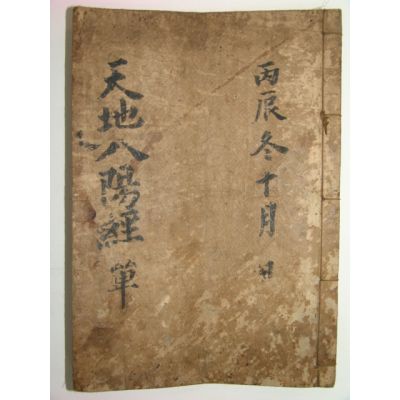 丙辰冬十月 日
天地八陽經 單